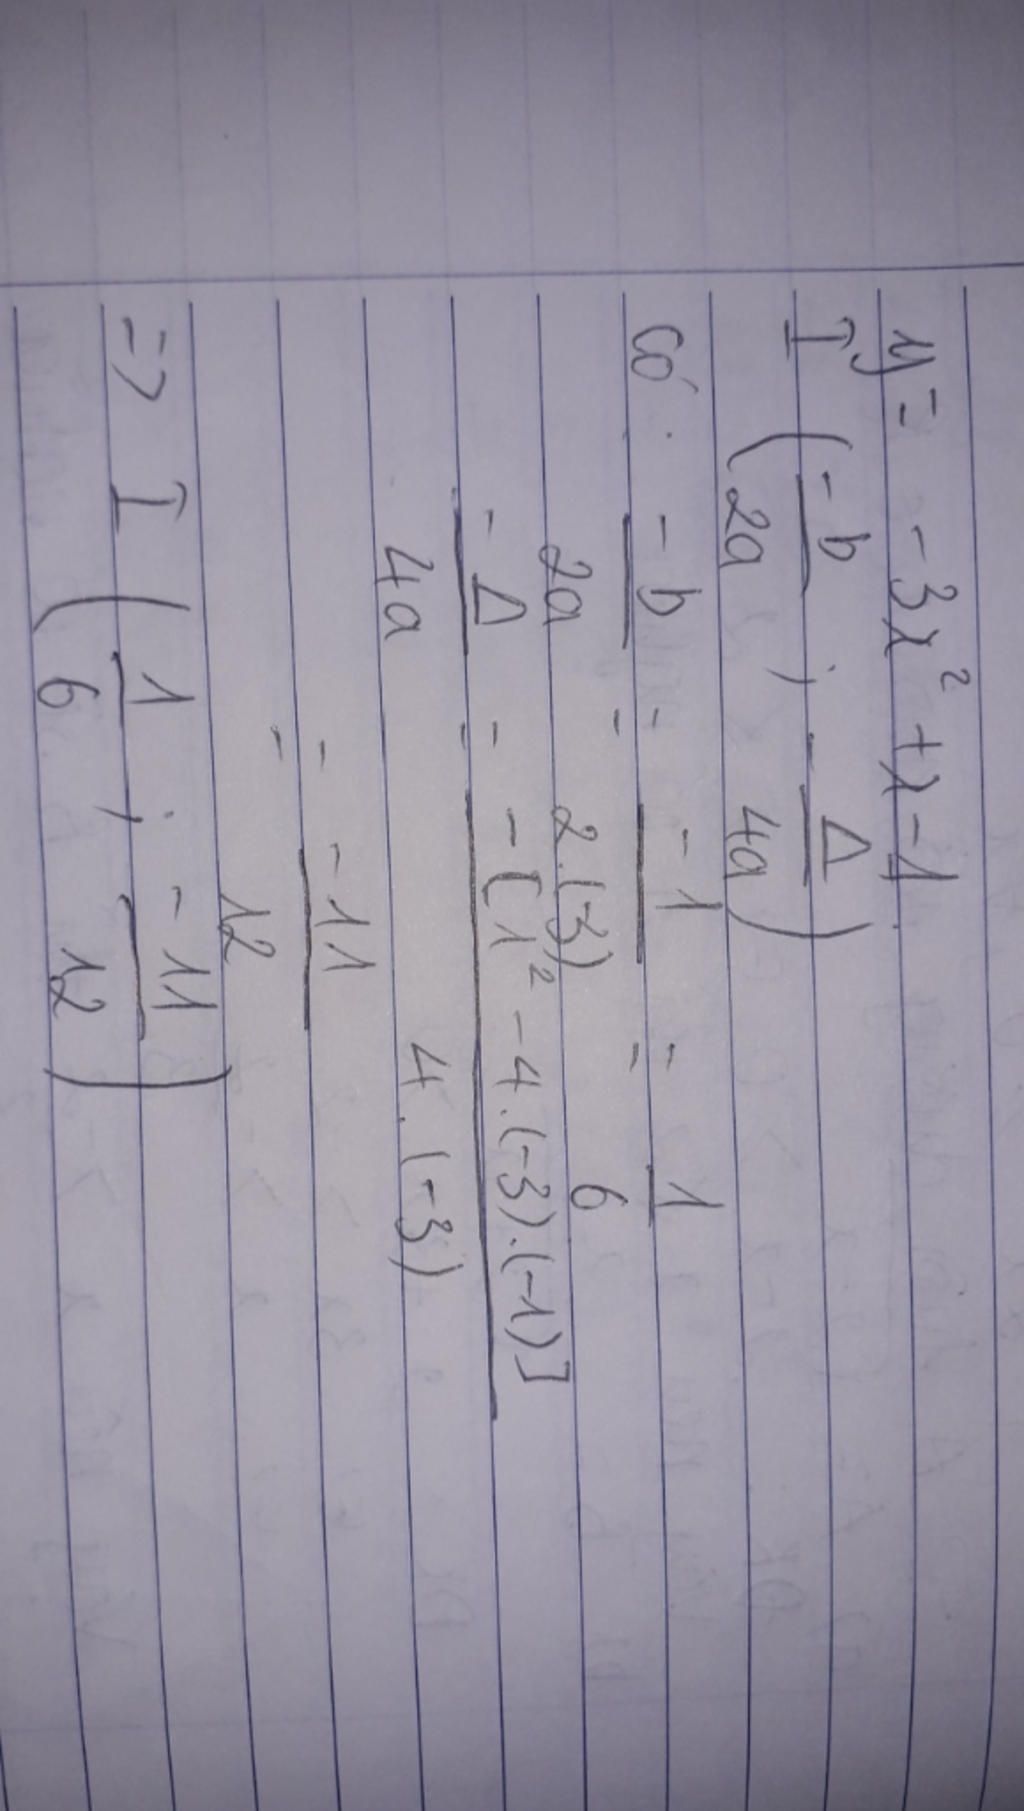 y = -3x² + x - 1
I (-b/2a ; -Δ/4a)
Có: -b/2a = -1/2.(-3) = 1/6
-Δ/4a = -[1² - 4.(-3).(-1)]/4.(-3)
= -11/12
=> I (1/6 ; -11/12)